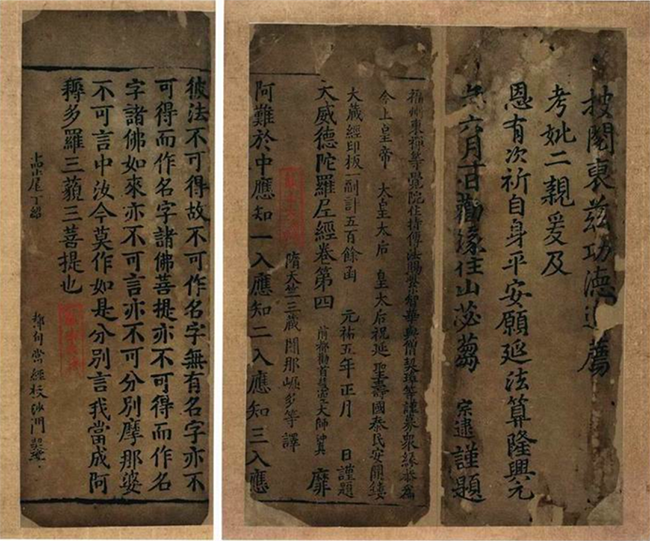 披閱衷茲功德追薦
考妣二親爰及
恩有次祈自身平安願延法算隆興元
年六月日勸緣住山苾蒭 宗逮 謹題
福州東禪等覺院住持傳法賜紫智華與僧契璋等謹募衆緣恭為
今上皇帝 太皇太后 皇太后祝延聖壽國泰民安開鏤
大藏經印板一副計五百餘函 元祐五年正月 日謹題
大威德陀羅尼經卷第四 靡
隋天竺三藏闍那崛多等譯
阿難於中應知一入應知二入應知三入應
彼法不可得故不可作名字無有名字亦不
可得而作名字諸佛菩提亦不可得而作名
字諸佛如來亦不可言亦不可分別摩那婆
不可言中汝今莫作如是分別言我當成阿
耨多羅三藐三菩提也